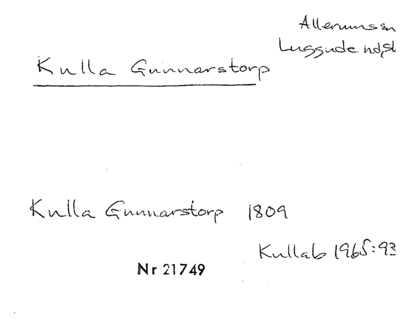 Allerums sn
Luggude hd, Sk
Kulla Gunnarstorp
Kulla Gunnarstorp 1809
Kullab 1965:93
Nr 21749